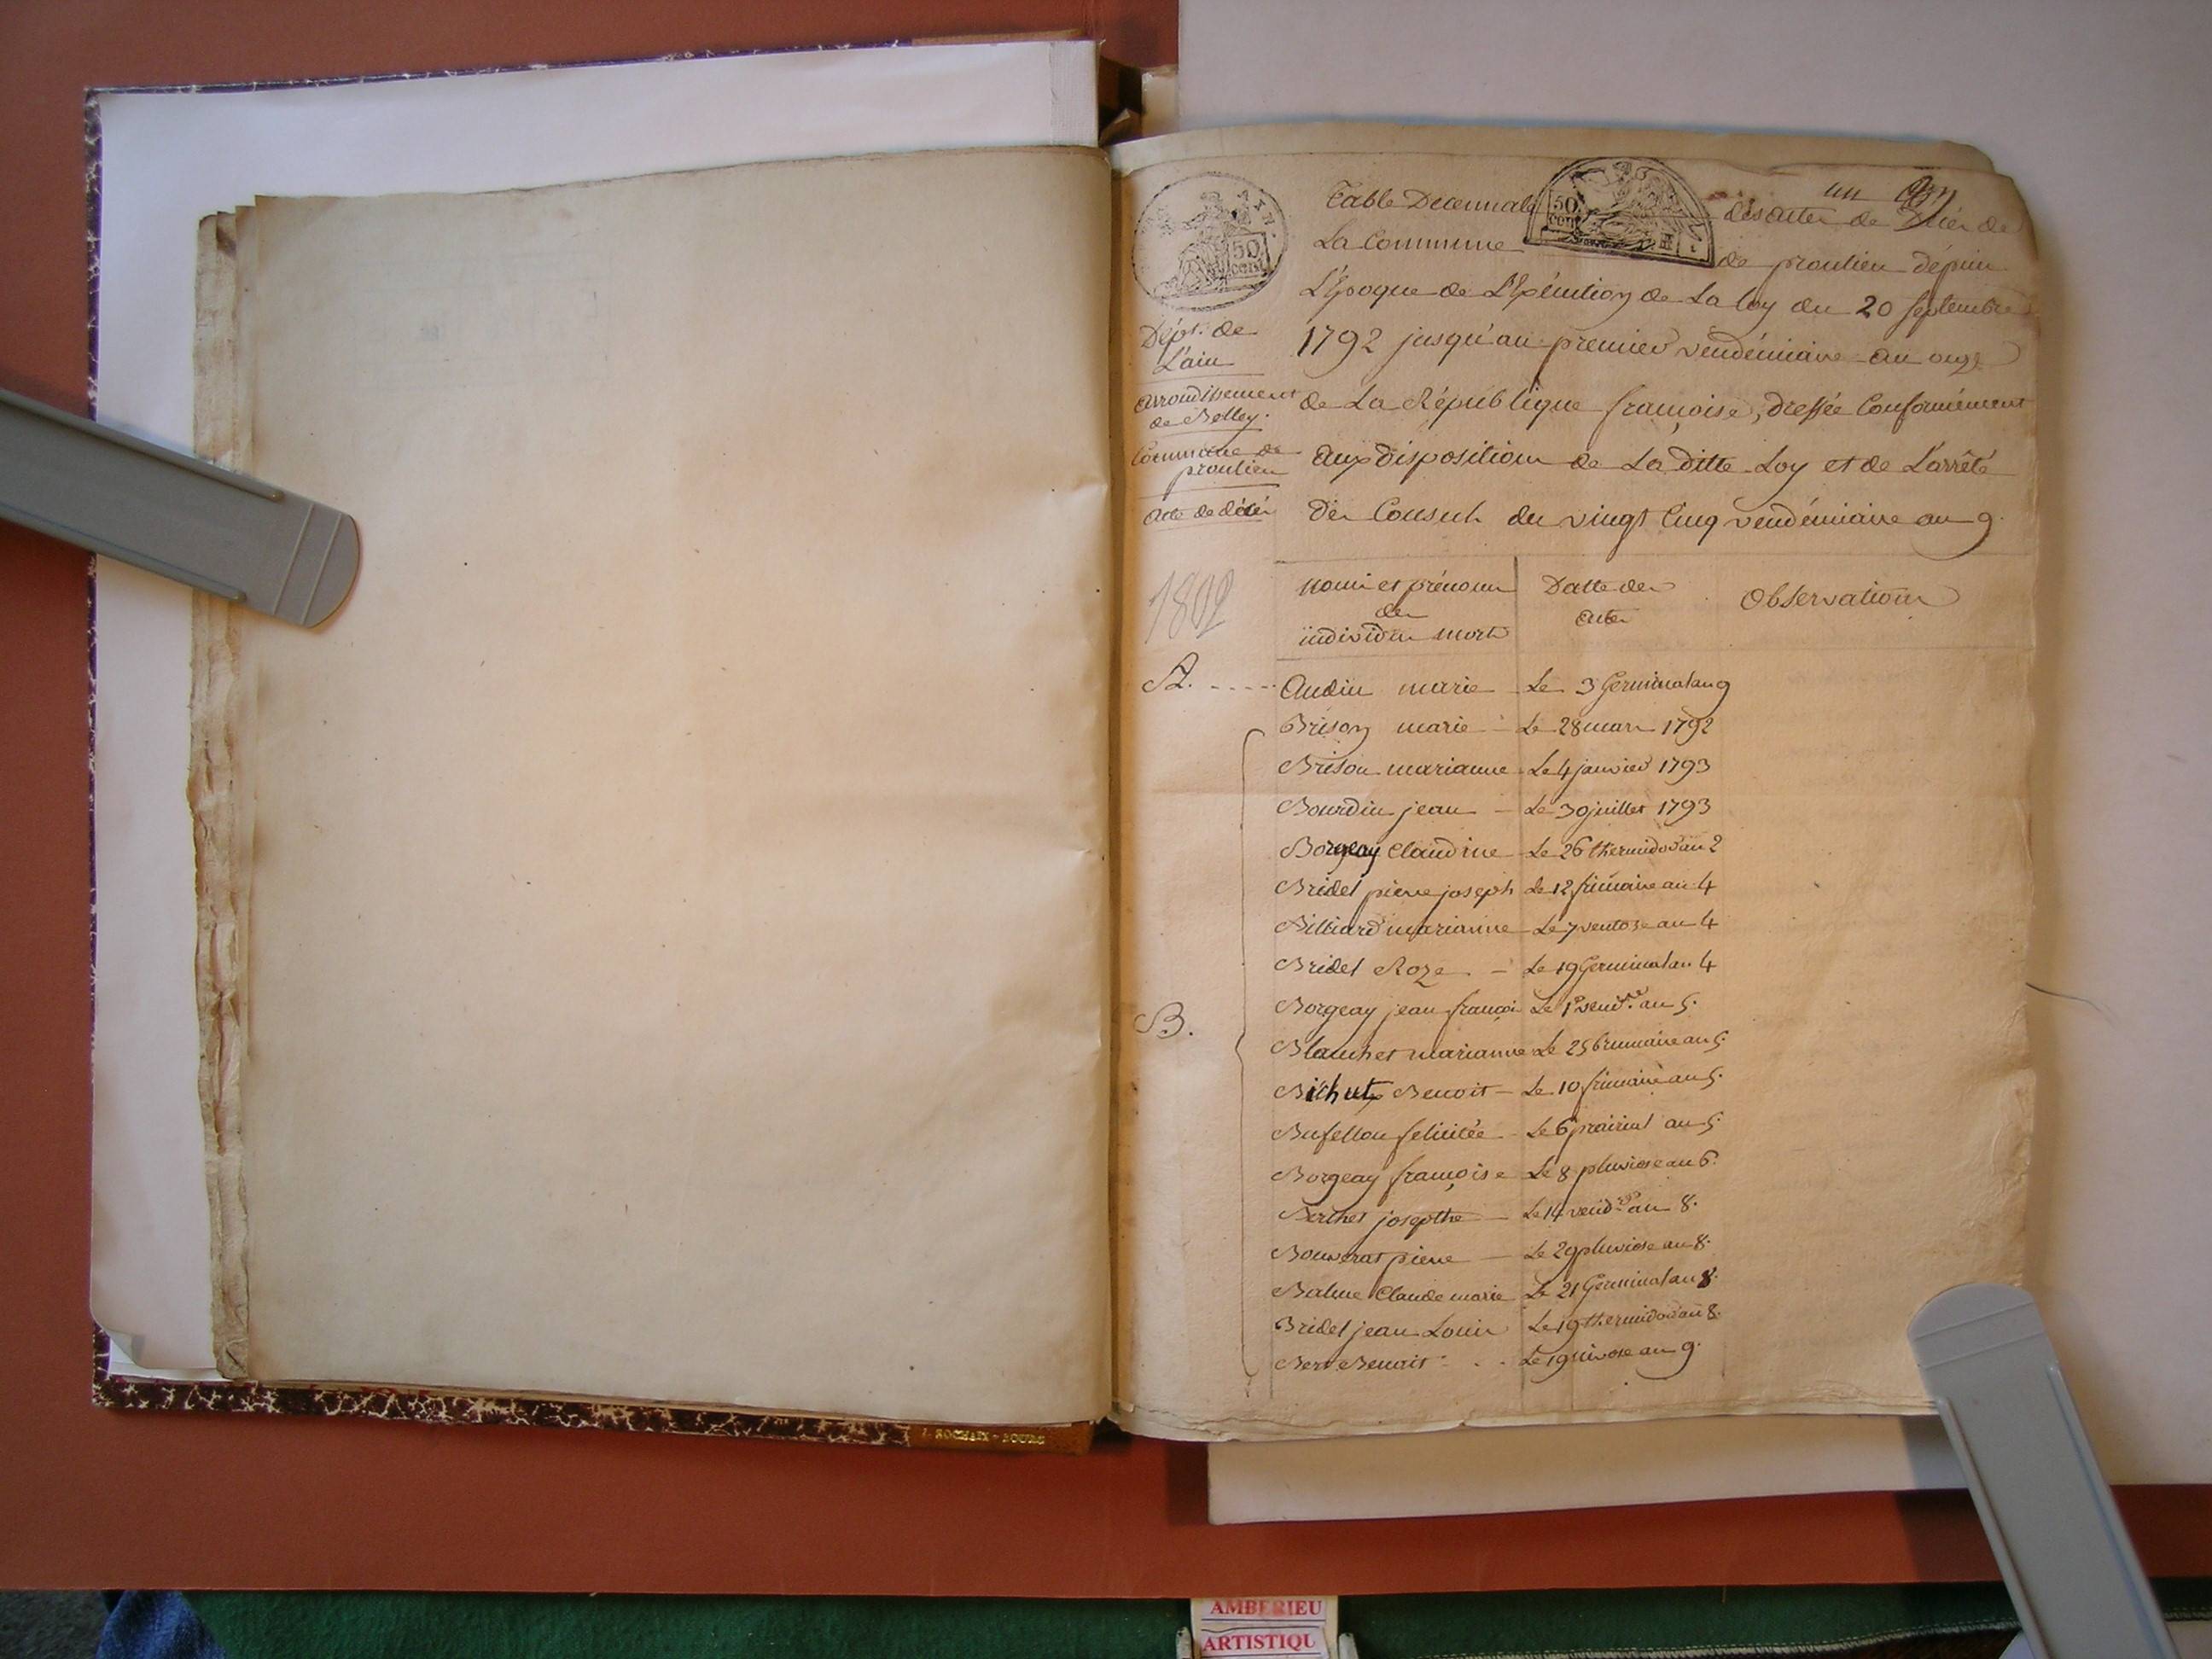 Table Decennale
des actes de Décès de
La Commune
de proulieu depuis
L'Epoque de L'Exécution de La loy du 20 septembre
1792 jusqu'au premier vendémiaire an onze
de La République françoise, dressée Conformément
aux Dispositions de La ditte Loy et de L'arrêté
Des Consuls du vingt Cinq vendémiaire an 9.
50
cent
50
cent
Dépt. de
L'ain
arrondissement
de Belley.
Commune de
proulieu
acte de décès
1802
noms et prénoms
des
individus morts
Datte des
actes
Observations
A.
Audin marie Le 3 Germinal an 9
B.
Brison marie Le 28 mars 1792
Brison marianne Le 4 janvier 1793
Bourdin jean Le 30 juillet 1793
Borgeay Claudine Le 26 thermidor an 2
Bridel pierre joseph Le 12 frimaire an 4
Billiard marianne Le 7 ventose an 4
Bridel Roze Le 19 Germinal an 4
Borgeay jean françois Le 1er vend.re an 5.
Blanchet marianne Le 25 brumaire an 5.
Bichut Benoit Le 10 frimaire an 5.
Bufellou felicitée Le 6 prairial an 5.
Borgeay françoise Le 8 pluviose an 6.
Berthet josepthe Le 14 vend.re an 8.
Bouverat pierre Le 29 pluviose an 8.
Balme Claude marie Le 21 Germinal an 8.
Bridel jean Louis Le 19 thermidor an 8.
Bert Benoit Le 19 nivose an 9.
J. ROCHAIX - BOURG
AMBERIEU
ARTISTIQU